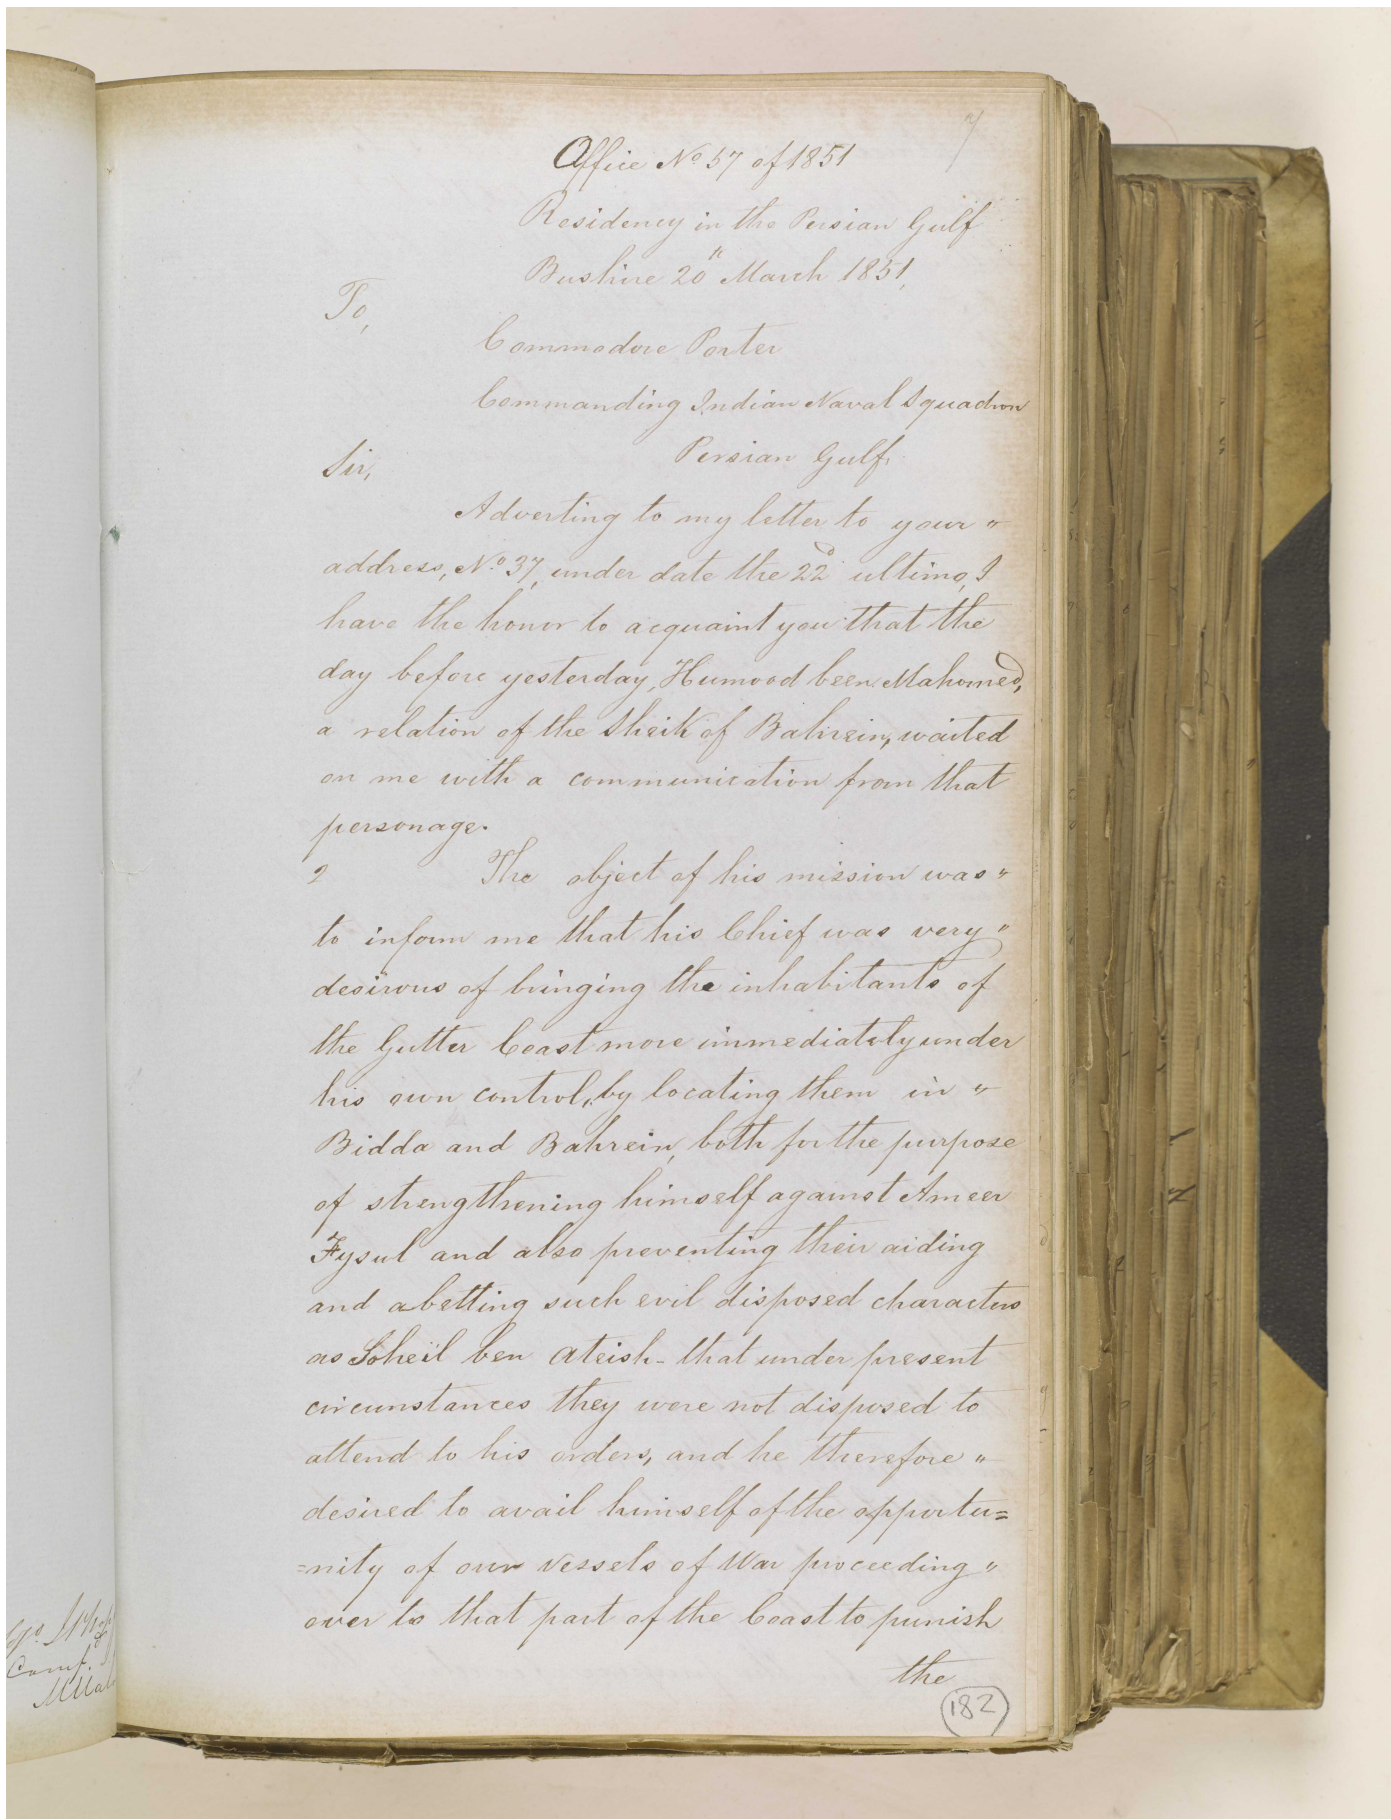 7
Office No 57 of 1851
Residency in the Persian Gulf
Bushire 20th March 1851,
To,
Commodore Porter
Commanding Indian Naval Squadron
Persian Gulf.
Sir,
Adverting to my letter to your "
address, No. 37, under date the 22d ultimo, I
have the honor to acquaint you that the
day before yesterday, Humood been Mahomed,
a relation of the Sheik of Bahrein, waited
on me with a communication from that
personage.
2 The object of his mission was "
to inform me that his Chief was very "
desirous of bringing the inhabitants of
the Gutter Coast more immediately under
his own control, by locating them in "
Bidda and Bahrein, both for the purpose
of strengthening himself against Ameer
Fysul and also preventing their aiding
and abetting such evil disposed characters
as Soheil ben Ateish - that under present
circumstances they were not disposed to
attend to his orders, and he therefore "
desired to avail himself of the opportu=
=nity of our Vessels of War proceeding "
over to that part of the Coast to punish
the
182